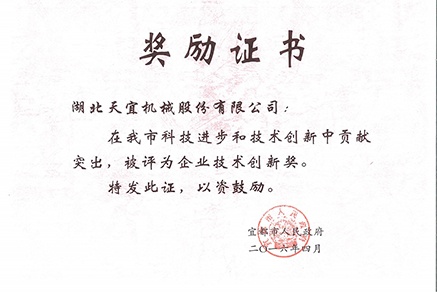 奖励证书
湖北天宜机械股份有限公司：
在我市科技进步和技术创新中贡献
突出，被评为企业技术创新奖。
特发此证，以资鼓励。
宜都市人民政府
二〇一六年四月